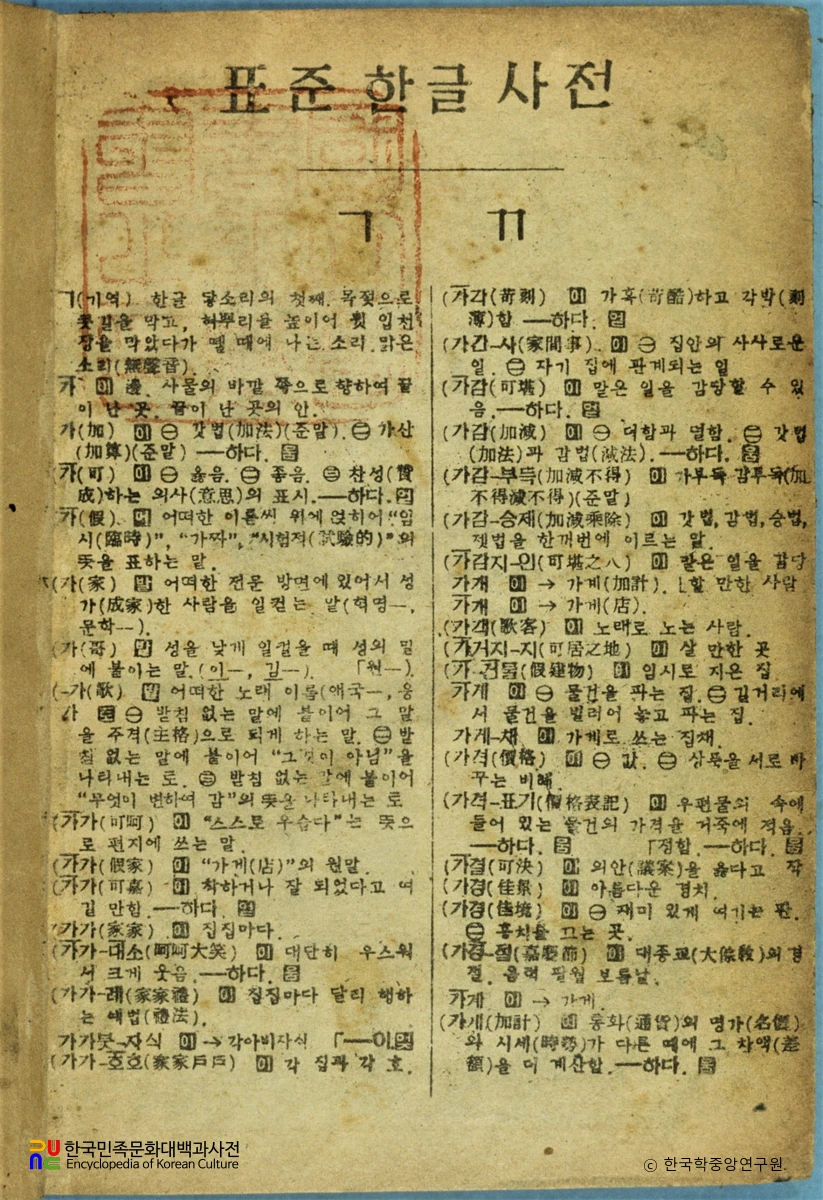 표준 한글 사전
ㄱ ㄲ
ㄱ(기역) 한글 닿소리의 첫째. 목젖으로
콧길을 막고, 혀뿌리를 높이어 뒷 입천
장을 막았다가 뗄 때에 나는 소리. 맑은
소리(無聲音).
가 이 邊. 사물의 바깥 쪽으로 향하여 끝
이 난 곳. 끝이 난 곳의 안.
가(加) 이 ㊀ 갓법(加法)(준말). ㊁ 가산
(加算)(준말) ―하다.
가(可) 이 ㊀ 옳음. ㊁ 좋음. ㊂ 찬성(贊
成)하는 의사(意思)의 표시. ―하다.
가(假). 어떠한 이름씨 위에 얹히어 “임
시(臨時)”, “가짜”, “시험적(試驗的)”의
뜻을 표하는 말.
(가(家) 발 어떠한 전문 방면에 있어서 성
가(成家)한 사람을 일컫는 말(혁명―,
문학―).
(가(哥) 발 성을 낮게 일컬을 때 성의 밑
에 붙이는 말. (이―, 김―). 「원―).
(-가(歌) 발 어떠한 노래 이름(애국―, 응
가 토 ㊀ 받침 없는 말에 붙이어 그 말
을 주격(主格)으로 되게 하는 말. ㊁ 받
침 없는 말에 붙이어 “그것이 아님”을
나타내는 토. ㊂ 받침 없는 말에 붙이어
“무엇이 변하여 감”의 뜻을 나타내는 토
(가가(可呵) 이 “스스로 우습다”는 뜻으
로 편지에 쓰는 말.
(가가(假家) 이 “가게(店)”의 원말.
(가가(可嘉) 이 착하거나 잘 되었다고 여
길 만함. ―하다.
(가가(家家) 이 집집마다.
(가가-대소(呵呵大笑) 이 대단히 우스워
서 크게 웃음. ―하다.
(가가-례(家家禮) 이 집집마다 달리 행하
는 예법(禮法).
가가붓-자식 이 → 각아비자식 「―이
(가가-호호(家家戶戶) 이 각 집과 각 호.
(가각(苛刻) 이 가혹(苛酷)하고 각박(刻
薄)함 ―하다.
(가간-사(家間事). 이 ㊀ 집안의 사사로운
일. ㊁ 자기 집에 관계되는 일
(가감(可堪) 이 맡은 일을 감당할 수 있
음. ―하다.
(가감(加減) 이 ㊀ 더함과 덜함. ㊁ 갓법
(加法)과 감법(減法). ―하다.
(가감-부득(加減不得) 이 가부득 감부득(加
不得減不得)(준말)
(가감-승제(加減乘除) 이 갓법, 감법, 승법,
젯법을 한꺼번에 이르는 말.
(가감지-인(可堪之人) 이 맡은 일을 감당
가개 이 → 가계(加計). 「할 만한 사람
가개 이 → 가게(店).
(가객(歌客) 이 노래로 노는 사람.
(가거지-지(可居之地) 이 살 만한 곳
(가-건물(假建物) 이 임시로 지은 집
가게 이 ㊀ 물건을 파는 집. ㊁ 길거리에
서 물건을 벌리어 놓고 파는 집.
가게-채 이 가게로 쓰는 집채.
(가격(價格) 이 ㊀ 값. ㊁ 상품을 서로 바
꾸는 비례.
(가격-표기(價格表記) 이 우편물의 속에
들어 있는 물건의 가격을 거죽에 적음.
―하다. 「정함. ―하다.
(가결(可決) 이 의안(議案)을 옳다고 작
(가경(佳景) 이 아름다운 경치.
(가경(佳境) 이 ㊀ 재미 있게 여기는 판.
㊁ 흥치를 끄는 곳.
(가경-절(嘉慶節) 이 대종교(大倧敎)의 경
절. 음력 팔월 보름날.
가계 이 → 가게.
(가계(加計) 이 통화(通貨)의 명가(名價)
와 시세(時勢)가 다른 때에 그 차액(差
額)을 더 계산함. ―하다.
한국민족문화대백과사전
Encyclopedia of Korean Culture
ⓒ 한국학중앙연구원.